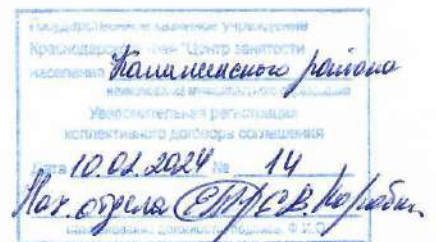 Государственное казенное учреждение
Краснодарского края "Центр занятости
населения Калининского района
наименование муниципального образования
Уведомительная регистрация
коллективного договора соглашения
Дата 10.01.2024 № 14
Нач. отдела С.В.
наименование должности подпись Ф.И.О.